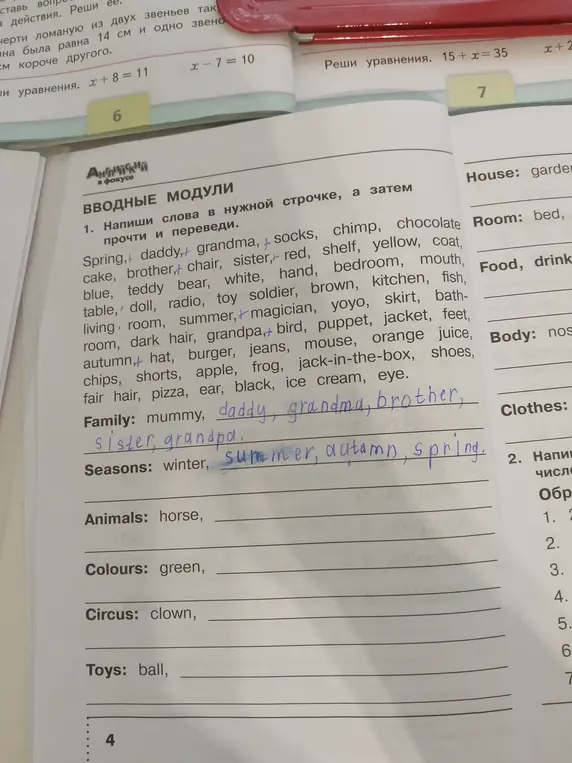 действия. Реши ее.
черти ломаную из двух звеньев так
на была равна 14 см и одно звено
см короче другого.
ши уравнения. x + 8 = 11 x − 7 = 10
6
Реши уравнения. 15 + x = 35
7
Английский
в фокусе
ВВОДНЫЕ МОДУЛИ
1. Напиши слова в нужной строчке, а затем
прочти и переведи.
Spring, daddy, grandma, socks, chimp, chocolate
cake, brother, chair, sister, red, shelf, yellow, coat,
blue, teddy bear, white, hand, bedroom, mouth,
table, doll, radio, toy soldier, brown, kitchen, fish,
living room, summer, magician, yoyo, skirt, bath-
room, dark hair, grandpa, bird, puppet, jacket, feet,
autumn, hat, burger, jeans, mouse, orange juice,
chips, shorts, apple, frog, jack-in-the-box, shoes,
fair hair, pizza, ear, black, ice cream, eye.
Family: mummy, daddy, grandma, brother,
sister, grandpa.
Seasons: winter, summer, autamn, spring.
Animals: horse,
Colours: green,
Circus: clown,
Toys: ball,
4
House: garde
Room: bed,
Food, drink
Body: nos
Clothes:
2. Напи
числ
Обр
1.
2.
3.
4.
5.
6
7